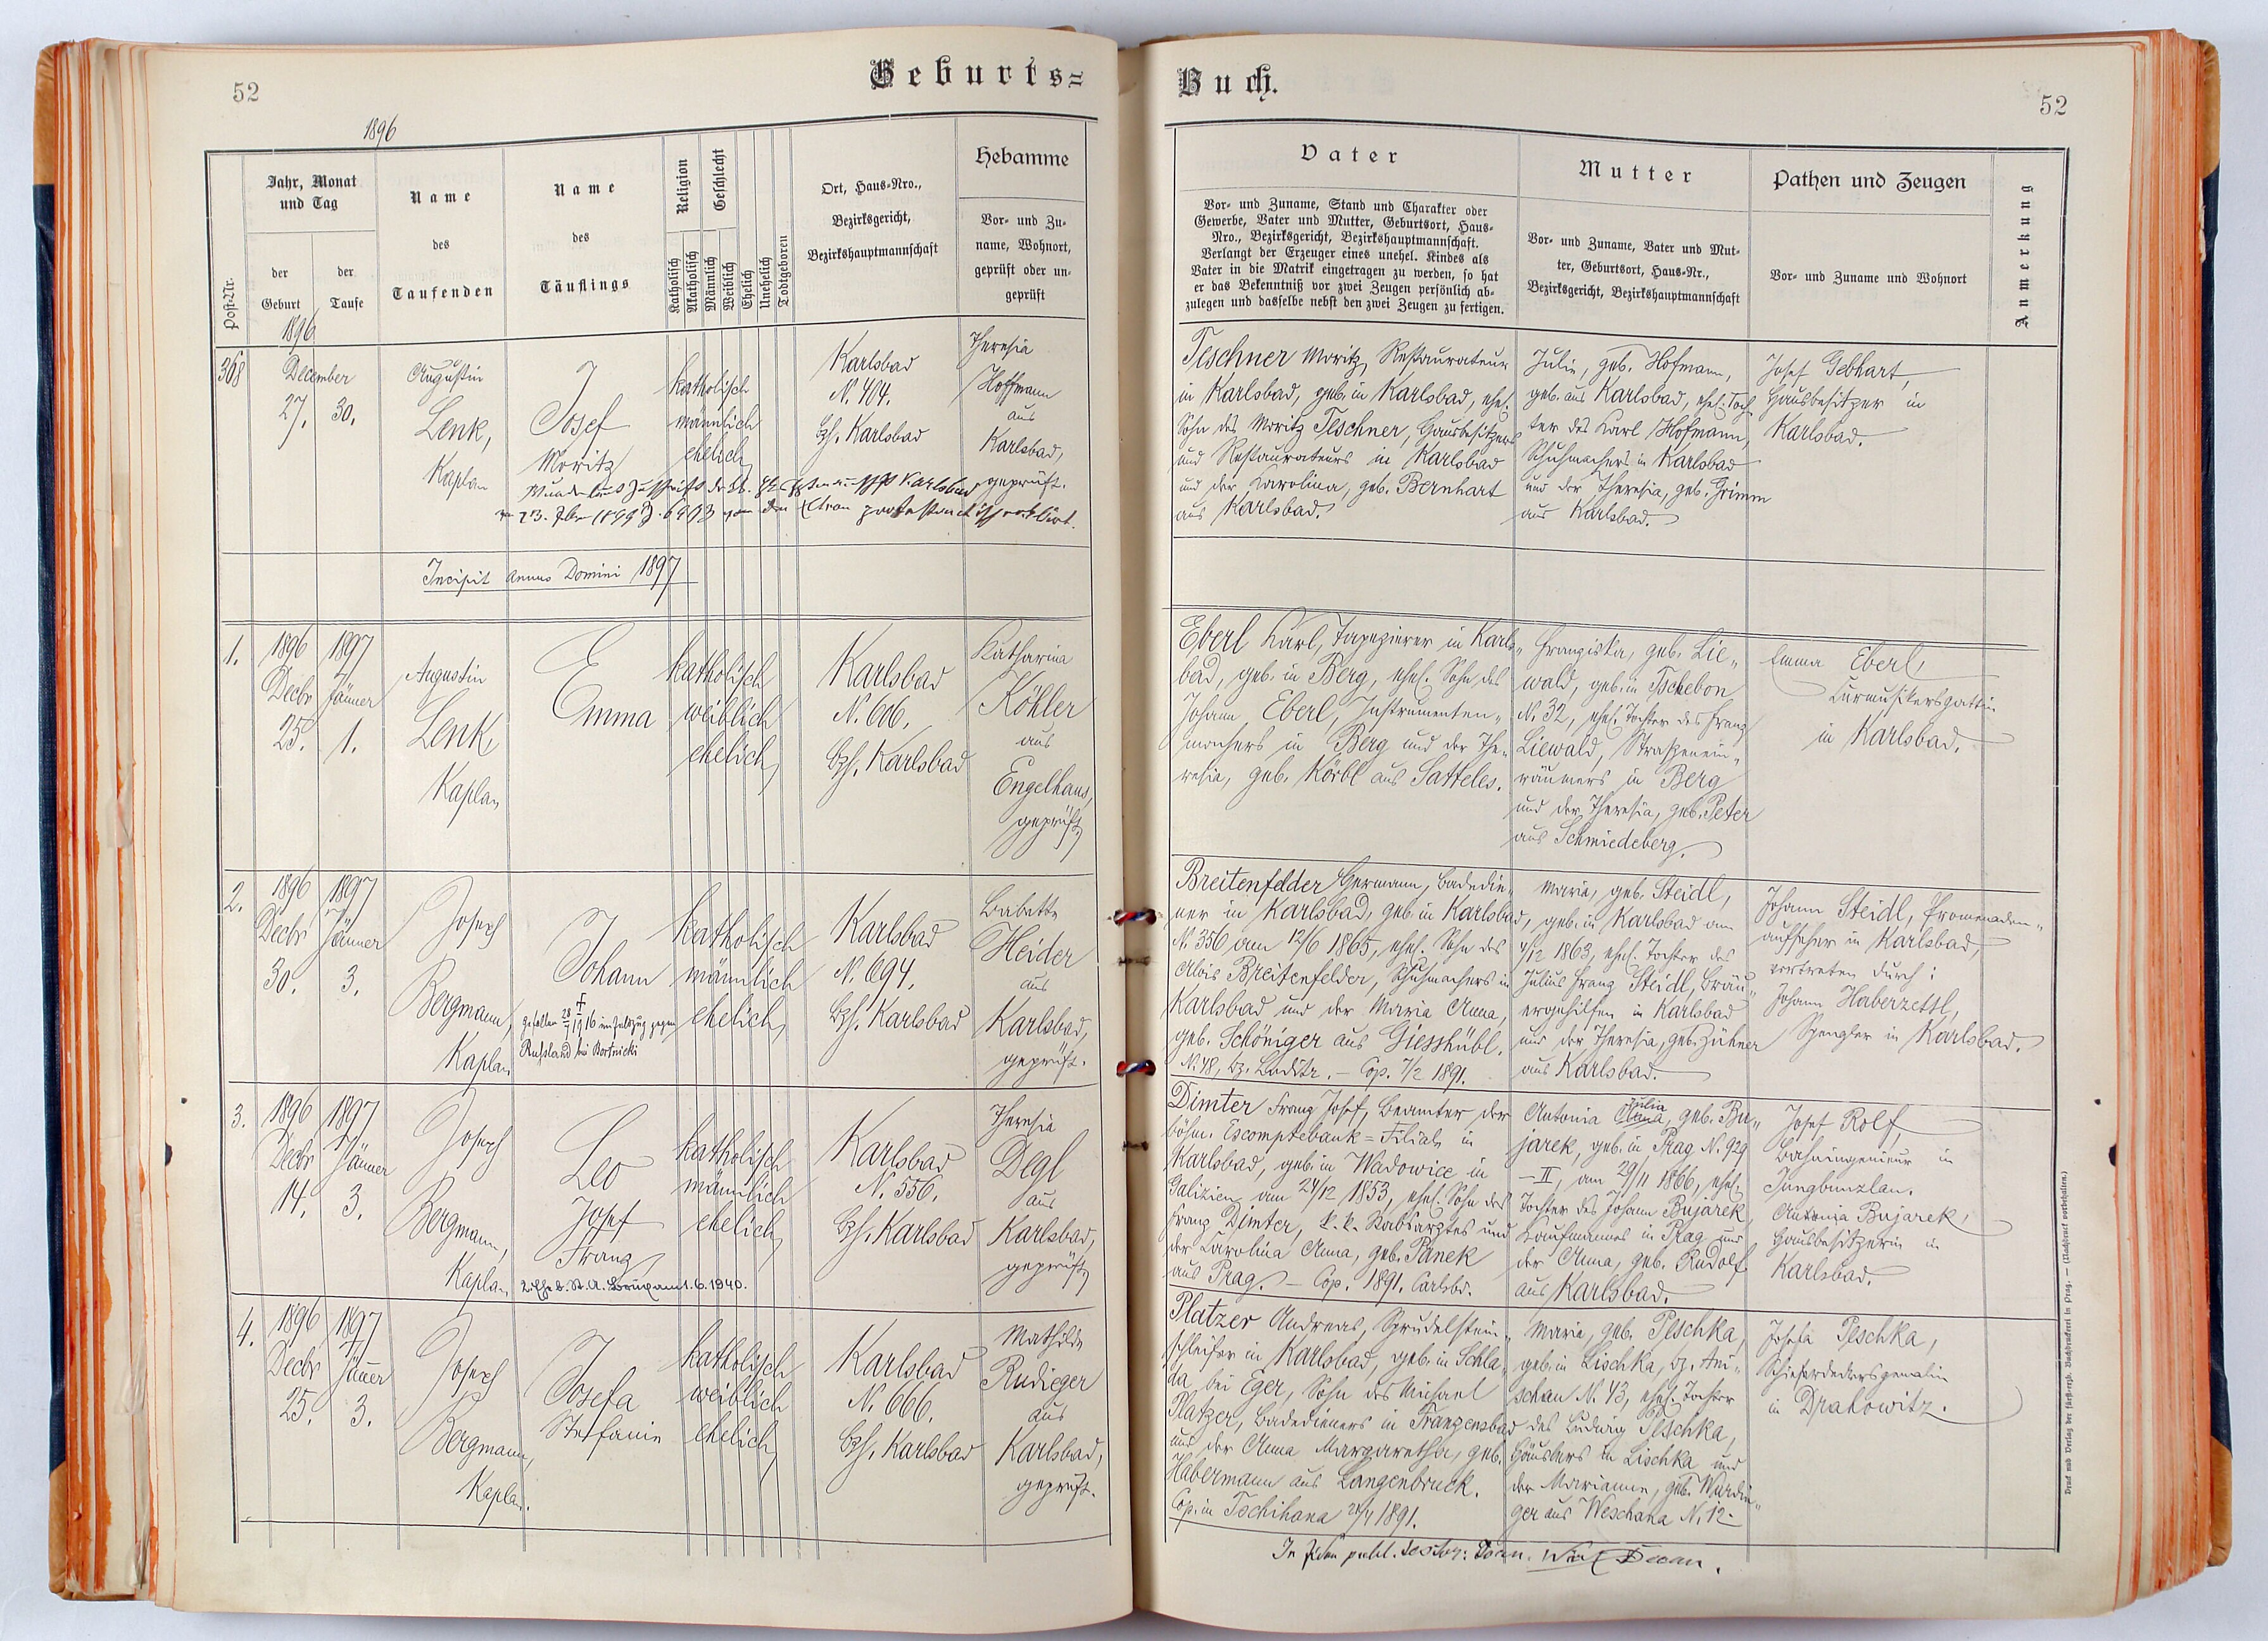 52
Geburts=
1896
Post-Nr.
Jahr, Monat
und Tag
der
Geburt
der
Taufe
Name
des
Taufenden
Name
des
Täuflings
Religion
Katholisch
Akatholisch
Geschlecht
Männlich
Weiblich
Ehelich
Unehelich
Todtgeboren
Ort, Haus-Nro.,
Bezirksgericht,
Bezirkshauptmannschaft
Hebamme
Vor- und Zu-
name, Wohnort,
geprüft oder un-
geprüft
1896
368
December
27. 30.
Augustin
Lenk,
Kaplan
Josef
Moritz
katholisch
männlich
ehelich
Karlsbad
N. 404.
Bzh. Karlsbad
Theresia
Hoffmann
aus
Karlsbad,
geprüft.
Incipit annus Domini 1897
1.
1896 1897
Decbr Jänner
25. 1.
Augustin
Lenk,
Kaplan
Emma
katholisch
weiblich
ehelich
Karlsbad
N. 606.
Bzh. Karlsbad
Katharina
Köhler
aus
Engelhaus,
geprüft
2.
1896 1897
Decbr Jänner
30. 3.
Joseph
Bergmann,
Kaplan
Johann
gefallen 28/7 1916 im Feldzug gegen
Rußland bei Bortnicki
katholisch
männlich
ehelich
Karlsbad
N. 694.
Bzh. Karlsbad
Babette
Heider
aus
Karlsbad,
geprüft.
3.
1896 1897
Decbr Jänner
14. 3.
Joseph
Bergmann,
Kaplan
Leo
Josef
Franz
1.6.1940.
katholisch
männlich
ehelich
Karlsbad
N. 556.
Bzh. Karlsbad
Theresia
Degl
aus
Karlsbad,
geprüft
4.
1896 1897
Decbr Jänner
25. 3.
Joseph
Bergmann,
Kaplan.
Josefa
Stefanie
katholisch
weiblich
ehelich
Karlsbad
N. 666.
Bzh. Karlsbad
Mathilde
Rudieger
aus
Karlsbad,
geprüft.
Buch.
52
Vater
Vor- und Zuname, Stand und Charakter oder
Gewerbe, Vater und Mutter, Geburtsort, Haus-
Nro., Bezirksgericht, Bezirkshauptmannschaft.
Verlangt der Erzeuger eines unehel. Kindes als
Vater in die Matrik eingetragen zu werden, so hat
er das Bekenntniß vor zwei Zeugen persönlich ab-
zulegen und dasselbe nebst den zwei Zeugen zu fertigen.
Mutter
Vor- und Zuname, Vater und Mut-
ter, Geburtsort, Haus-Nr.,
Bezirksgericht, Bezirkshauptmannschaft
Pathen und Zeugen
Vor- und Zuname und Wohnort
Anmerkung
Teschner Moritz, Restaurateur
in Karlsbad, geb. in Karlsbad, ehel.
Sohn des Moritz Teschner, Hausbesitzers
und Restaurateurs in Karlsbad
und der Karolina, geb. Bernhart
aus Karlsbad.
Julie, geb. Hofmann,
geb. aus Karlsbad, ehel. Toch-
ter des Karl Hofmann,
Schuhmachers in Karlsbad
und der Theresia, geb. Grimm
aus Karlsbad.
Josef Gebhart,
Hausbesitzer in
Karlsbad.
Eberl Karl, Tapezierer in Karls-
bad, geb. in Berg, ehel. Sohn des
Johann Eberl, Instrumenten-
machers in Berg und der The-
resia, geb. Körbl aus Satteles.
Franziska, geb. Lie-
wald, geb. in Tschebon
N. 32, ehel. Tochter des Franz
Liewald, Straßenein-
räumers in Berg
und der Theresia, geb. Peter
aus Schmiedeberg.
Emma Eberl,
Curmusikersgattin
in Karlsbad.
Breitenfelder Hermann, Badedie-
ner in Karlsbad, geb. in Karlsbad,
N. 356 am 12/6 1865, ehel. Sohn des
Alois Breitenfelder, Schuhmachers in
Karlsbad und der Maria Anna,
geb. Schöniger aus Giesshübl.
N. 48, bz. Luditz. – Cop. 7/2 1891.
Maria, geb. Steidl,
geb. in Karlsbad am
4/12 1863, ehel. Tochter des
Julius Franz Steidl, Bräu-
ergehilfen in Karlsbad
und der Theresia, geb. Zühner
aus Karlsbad.
Johann Steidl, Promenaden-
aufseher in Karlsbad,
vertreten durch:
Johann Haberzettl,
Spengler in Karlsbad.
Dimter Franz Josef, Beamter der
böhm. Escomptebank=Filiale in
Karlsbad, geb. in Wadowice in
Galizien am 24/12 1853, ehel. Sohn des
Franz Dimter, k. k. Stabsarztes und
der Karolina Anna, geb. Panek
aus Prag. – Cop. 1891. Carlsbd.
Julia
Antonia Anna, geb. Bu-
jarek, geb. in Prag N. 929
–II, am 29/11 1866, ehel.
Tochter des Johann Bujarek,
Kaufmannes in Prag und
der Anna, geb. Rudolf
aus Karlsbad.
Josef Rolf,
Bahningenieur in
Jungbunzlau.
Antonia Bujarek,
Hausbesitzerin in
Karlsbad.
Platzer Andreas, Sprudelstein-
schleifer in Karlsbad, geb. in Schla-
da bei Eger, Sohn des Michael
Platzer, Badedieners in Franzensbad
und der Anna Margaretha, geb.
Habermann aus Langenbruck.
Cop. in Tschihana 1891.
Maria, geb. Peschka,
geb. in Lischka, bz. Ani-
schau N. 43, ehel. Tochter
des Ludwig Peschka,
Häuslers in Lischka und
der Marianne, geb. Wurdin-
ger aus Weschana N. 12.
Josefa Peschka,
Schieferdeckersgemalin
in Drahowitz.
Druck und Verlag der fürst-erzb. Buchdruckerei in Prag. — (Nachdruck vorbehalten.)